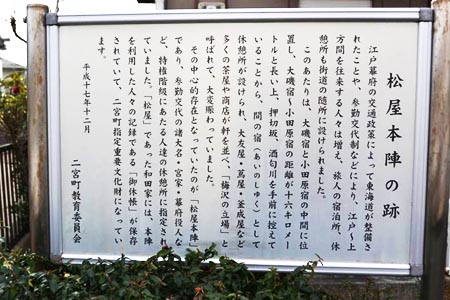 松屋本陣の跡
江戸幕府の交通政策によって東海道が整備さ
れたことや、参勤交代制などにより、江戸〜上
方間を往来する人々は増え、旅人の宿泊所、休
憩所も街道の随所に設けられました。
このあたりは、大磯宿と小田原宿の中間に位
置し、大磯宿〜小田原宿の距離が十六キロメー
トルと長い上、押切坂、酒匂川を手前に控えて
いることから、間の宿(あいのしゅく)として
休憩所が設けられ、大友屋・蔦屋・釜成屋など
多くの茶屋や商店が軒を並べ、「梅沢の立場」と
呼ばれて、大変賑わっていました。
その中心的存在となっていたのが「松屋本陣」
であり、参勤交代の諸大名・宮家・幕府役人な
ど、特権階級にあたる人達の休憩所に指定され
ていました。「松屋」であった和田家には、本陣
を利用した人々の記録である「御休帳」が保存
されていて、二宮町指定重要文化財になってい
ます。
平成十七年十二月
二宮町教育委員会